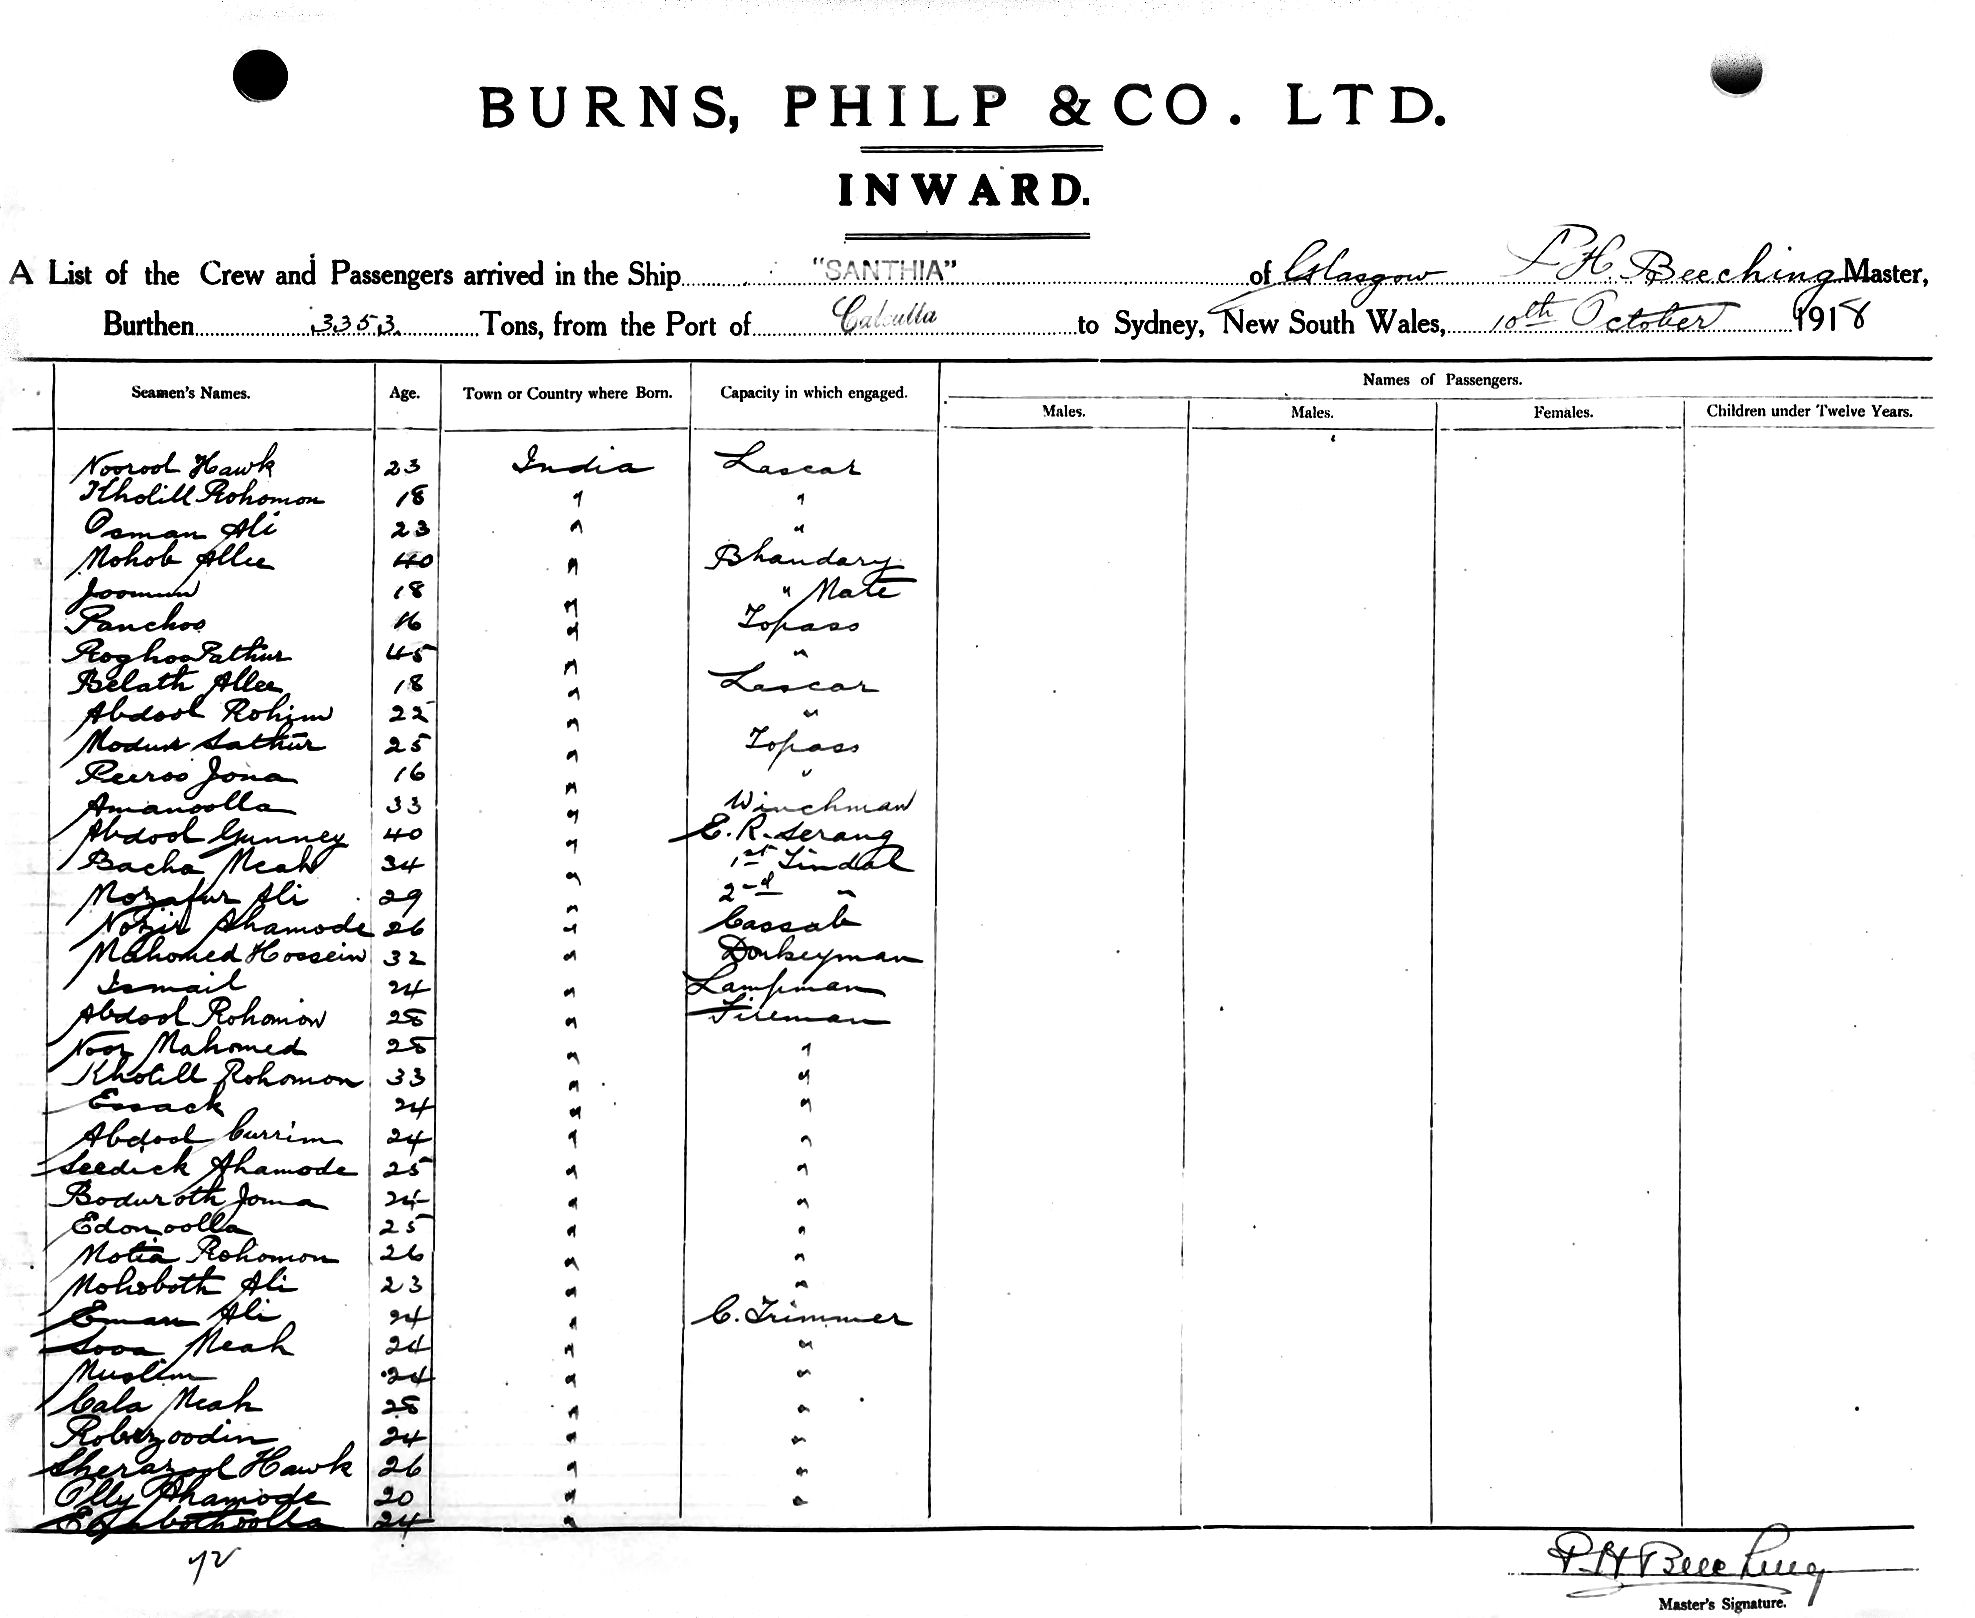 BURNS, PHILP & CO. LTD.
INWARD.
A List of the Crew and Passengers arrived in the Ship "SANTHIA" of Glasgow P H. Beeching Master,
Burthen 3353 Tons, from the Port of Calcutta to Sydney, New South Wales, 10th October 1918
Seamen's Names. Age. Town or Country where Born. Capacity in which engaged. Names of Passengers.
Males. Males. Females. Children under Twelve Years.
Noorool Hawk 23 India Lascar
Kholill Rohomon 18 " "
Osman Ali 23 " "
Mohob Allee 40 " Bhandary
Joomun 18 " " Mate
Panchoo 16 " Topass
Roghoo Pathur 45 " "
Belath Allee 18 " Lascar
Abdool Rohim 22 " "
Modun Sathur 25 " Topass
Peeroo Jona 16 " "
Amanoolla 33 " Winchman
Abdool Gunney 40 " E. R. Serang
Bacha Meah 34 " 1st Tindal
Mozafur Ali 29 " 2nd "
Nozir Ahamode 26 " Cassab
Mahomed Hossein 32 " Donkeyman
Ismail 24 " Lampman
Abdool Rohomon 28 " Fireman
Noor Mahomed 28 " "
Kholill Rohomon 33 " "
Essack 24 " "
Abdool Currim 24 " "
Seedick Ahamode 25 " "
Boduroth Joma 24 " "
Edonoolla 25 " "
Motia Rohomon 26 " "
Mohoboth Ali 23 " "
Eman Ali 24 " C. Trimmer
Sova Meah 24 " "
Muslim 24 " "
Cala Meah 28 " "
Robezoodin 24 " "
Sherazool Hawk 26 " "
Olly Ahamode 20 " "
24 "
72
P H Beeching
Master's Signature.